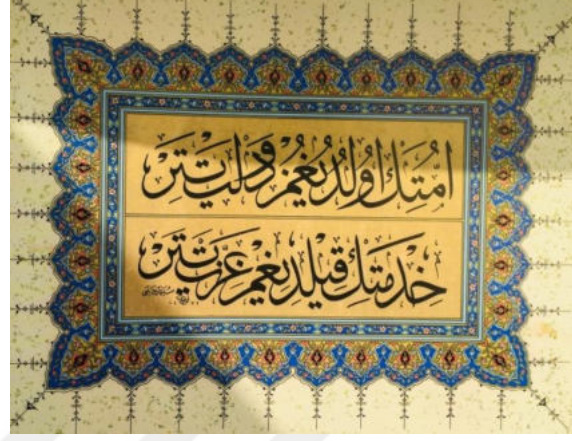 امتك اولديغمز دولت يتر
خدمتك قيلديغمز عزت يتر